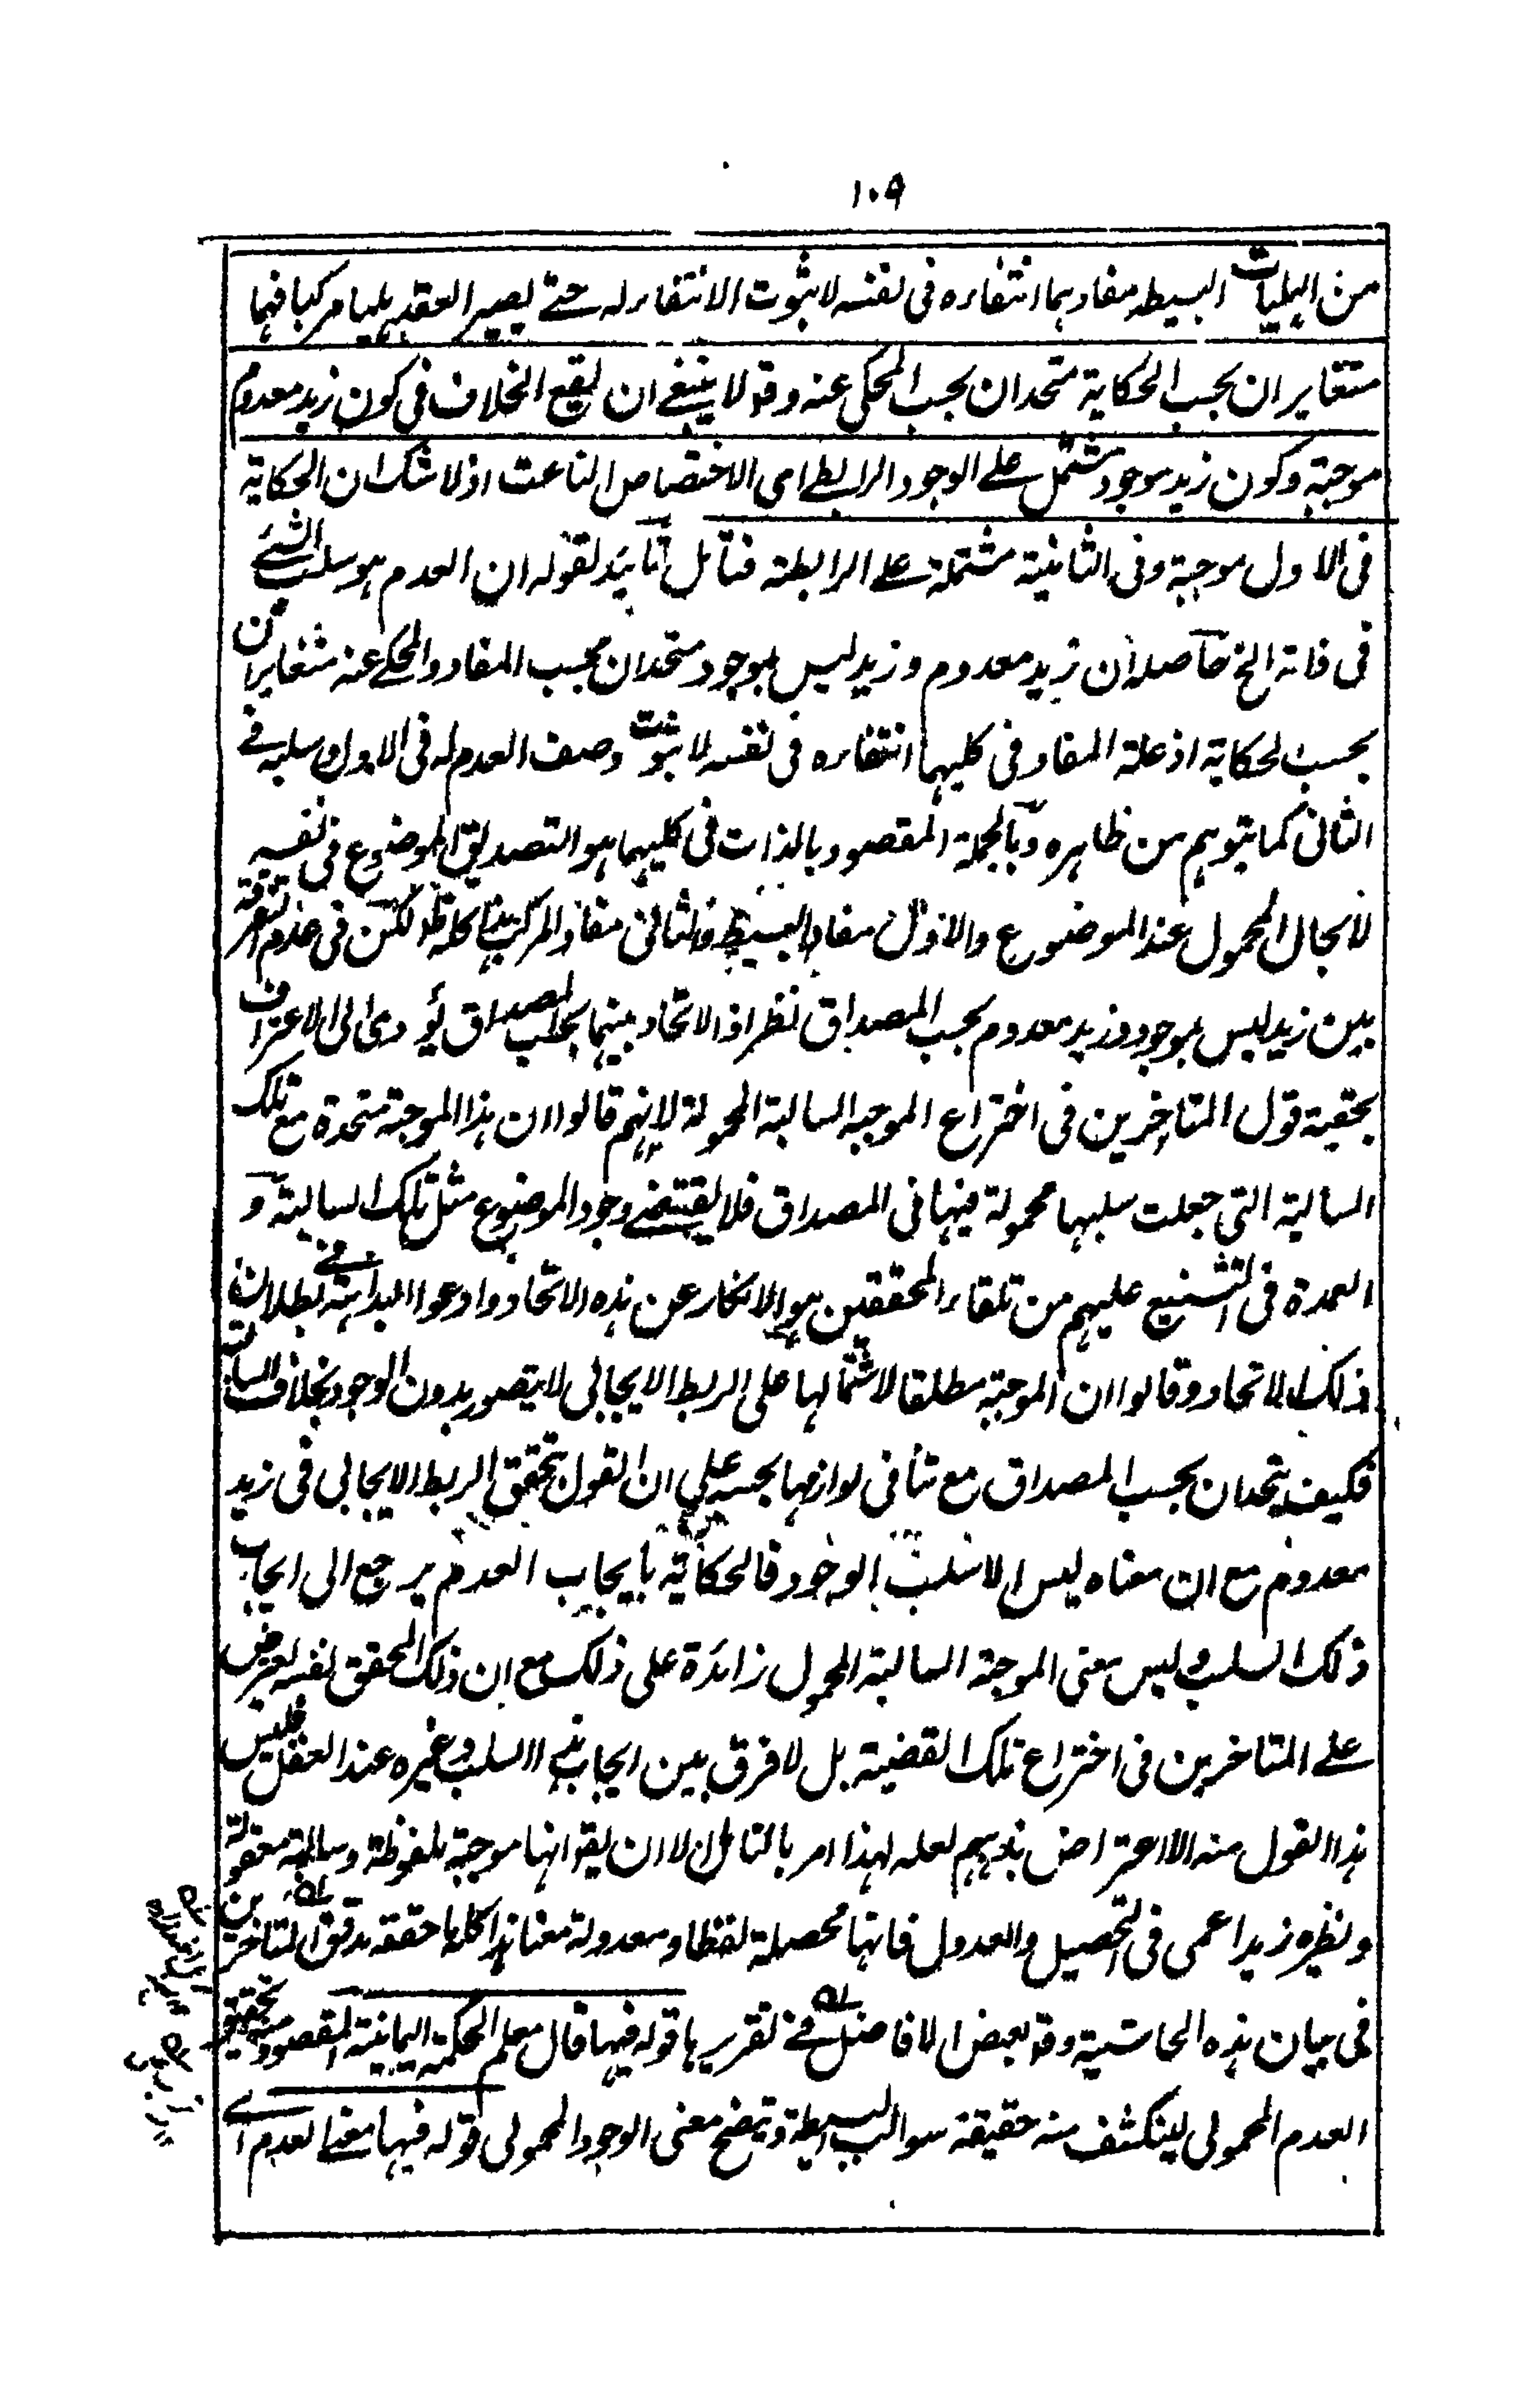 ١٠٩
من الهليات البسيطه مفادهما انتفاءه فى نفسه لا ثبوت الانتفاء له حتے يصير العقد هليا مركبا فهما
متغايران بحسب الحكاية متحدان بحسب المحكى عنه وقد لا ينبغے ان يقع الخلاف فى كون زيد معدوم
موجبة وكون زيد موجود مشتمل علے الوجود الرابطے اى الاختصاص الناعت اذ لا شك ان الحكاية
فى الاول موجبة وفى الثانية مشتملة علے الرابطة فتأمل تأييد لقوله ان العدم هو سلب الشئے
فى ذاته الخ حاصله ان زيد معدوم وزيد ليس بموجود متحدان بحسب المفاد والمحكے عنه متغايران
بحسب الحكاية اذ علة المفاد فى كليهما انتفاءه فى نفسه لا ثبوت وصف العدم له فى الاول وسلبه فے
الثانى كما يتوهم من ظاهره وبالجملة المقصود بالذات فى كليهما هو التصديق الموضوع فى نفسه
لا بحال المحمول عند الموضوع والاول مفاد البسيط والثانى مفاد المركب هذا كله لكن فى عدم التفرقة
بين زيد ليس بموجود وزيد معدوم بحسب المصداق نظر اذ الاتحاد بينهما بحسب المصداق يؤدى الى الاعتراف
بحقية قول المتاخرين فى اختراع الموجبه السالبة المحمولة لانهم قالوا ان هذا الموجبة متحدة مع تلك
السالبة التى جعلت سلبها محمولة فيها فى المصداق فلا يقتضے وجود الموضوع مثل تلك السالبة و
العمدة فى التشنيع عليهم من تلقاء المحققين هو الانكار عن هذه الاتحاد وادعوا البداهة فے بطلان
ذلك الاتحاد وقالوا ان الموجبة مطلقا لاشتمالها على الربط الايجابى لا يتصور بدون الوجود بخلاف السالبة
فكيف يتحدان بحسب المصداق مع تنافى لوازمها بحسبه على ان القول بتحقق الربط الايجابى فى زيد
معدوم مع ان معناه ليس الا سلب الوجود فالحكاية بايجاب العدم يرجع الى ايجاب
ذلك السلب وليس معنى الموجبة السالبة المحمول زائدة على ذلك مع ان ذلك المحقق نفسه يعترض
علے المتاخرين فى اختراع تلك القضية بل لا فرق بين ايجاب السلب وغيره عند العقل فليس
هذا القول منه الا اعتراض بمذهبهم لعله لهذا امر بالتامل الا ان يقو انها موجبة ملفوظة وسالبة معقولة
ونظيره زيد اعمى فى التحصيل والعدول فانها محصلة لفظا ومعدولة معنا هذا كله ما حققه مدقق المتاخرين
فى بيان هذه الحاشية وقد بعض الافاضل فے تقريرها قوله فيها قال معلم الحكمة اليمانية المقصود منه تحقيق
العدم المحمولى لينكشف منه حقيقة سوالب البسيطة ويتضح معنى الوجود المحمولى قوله فيها معنے العدم اے